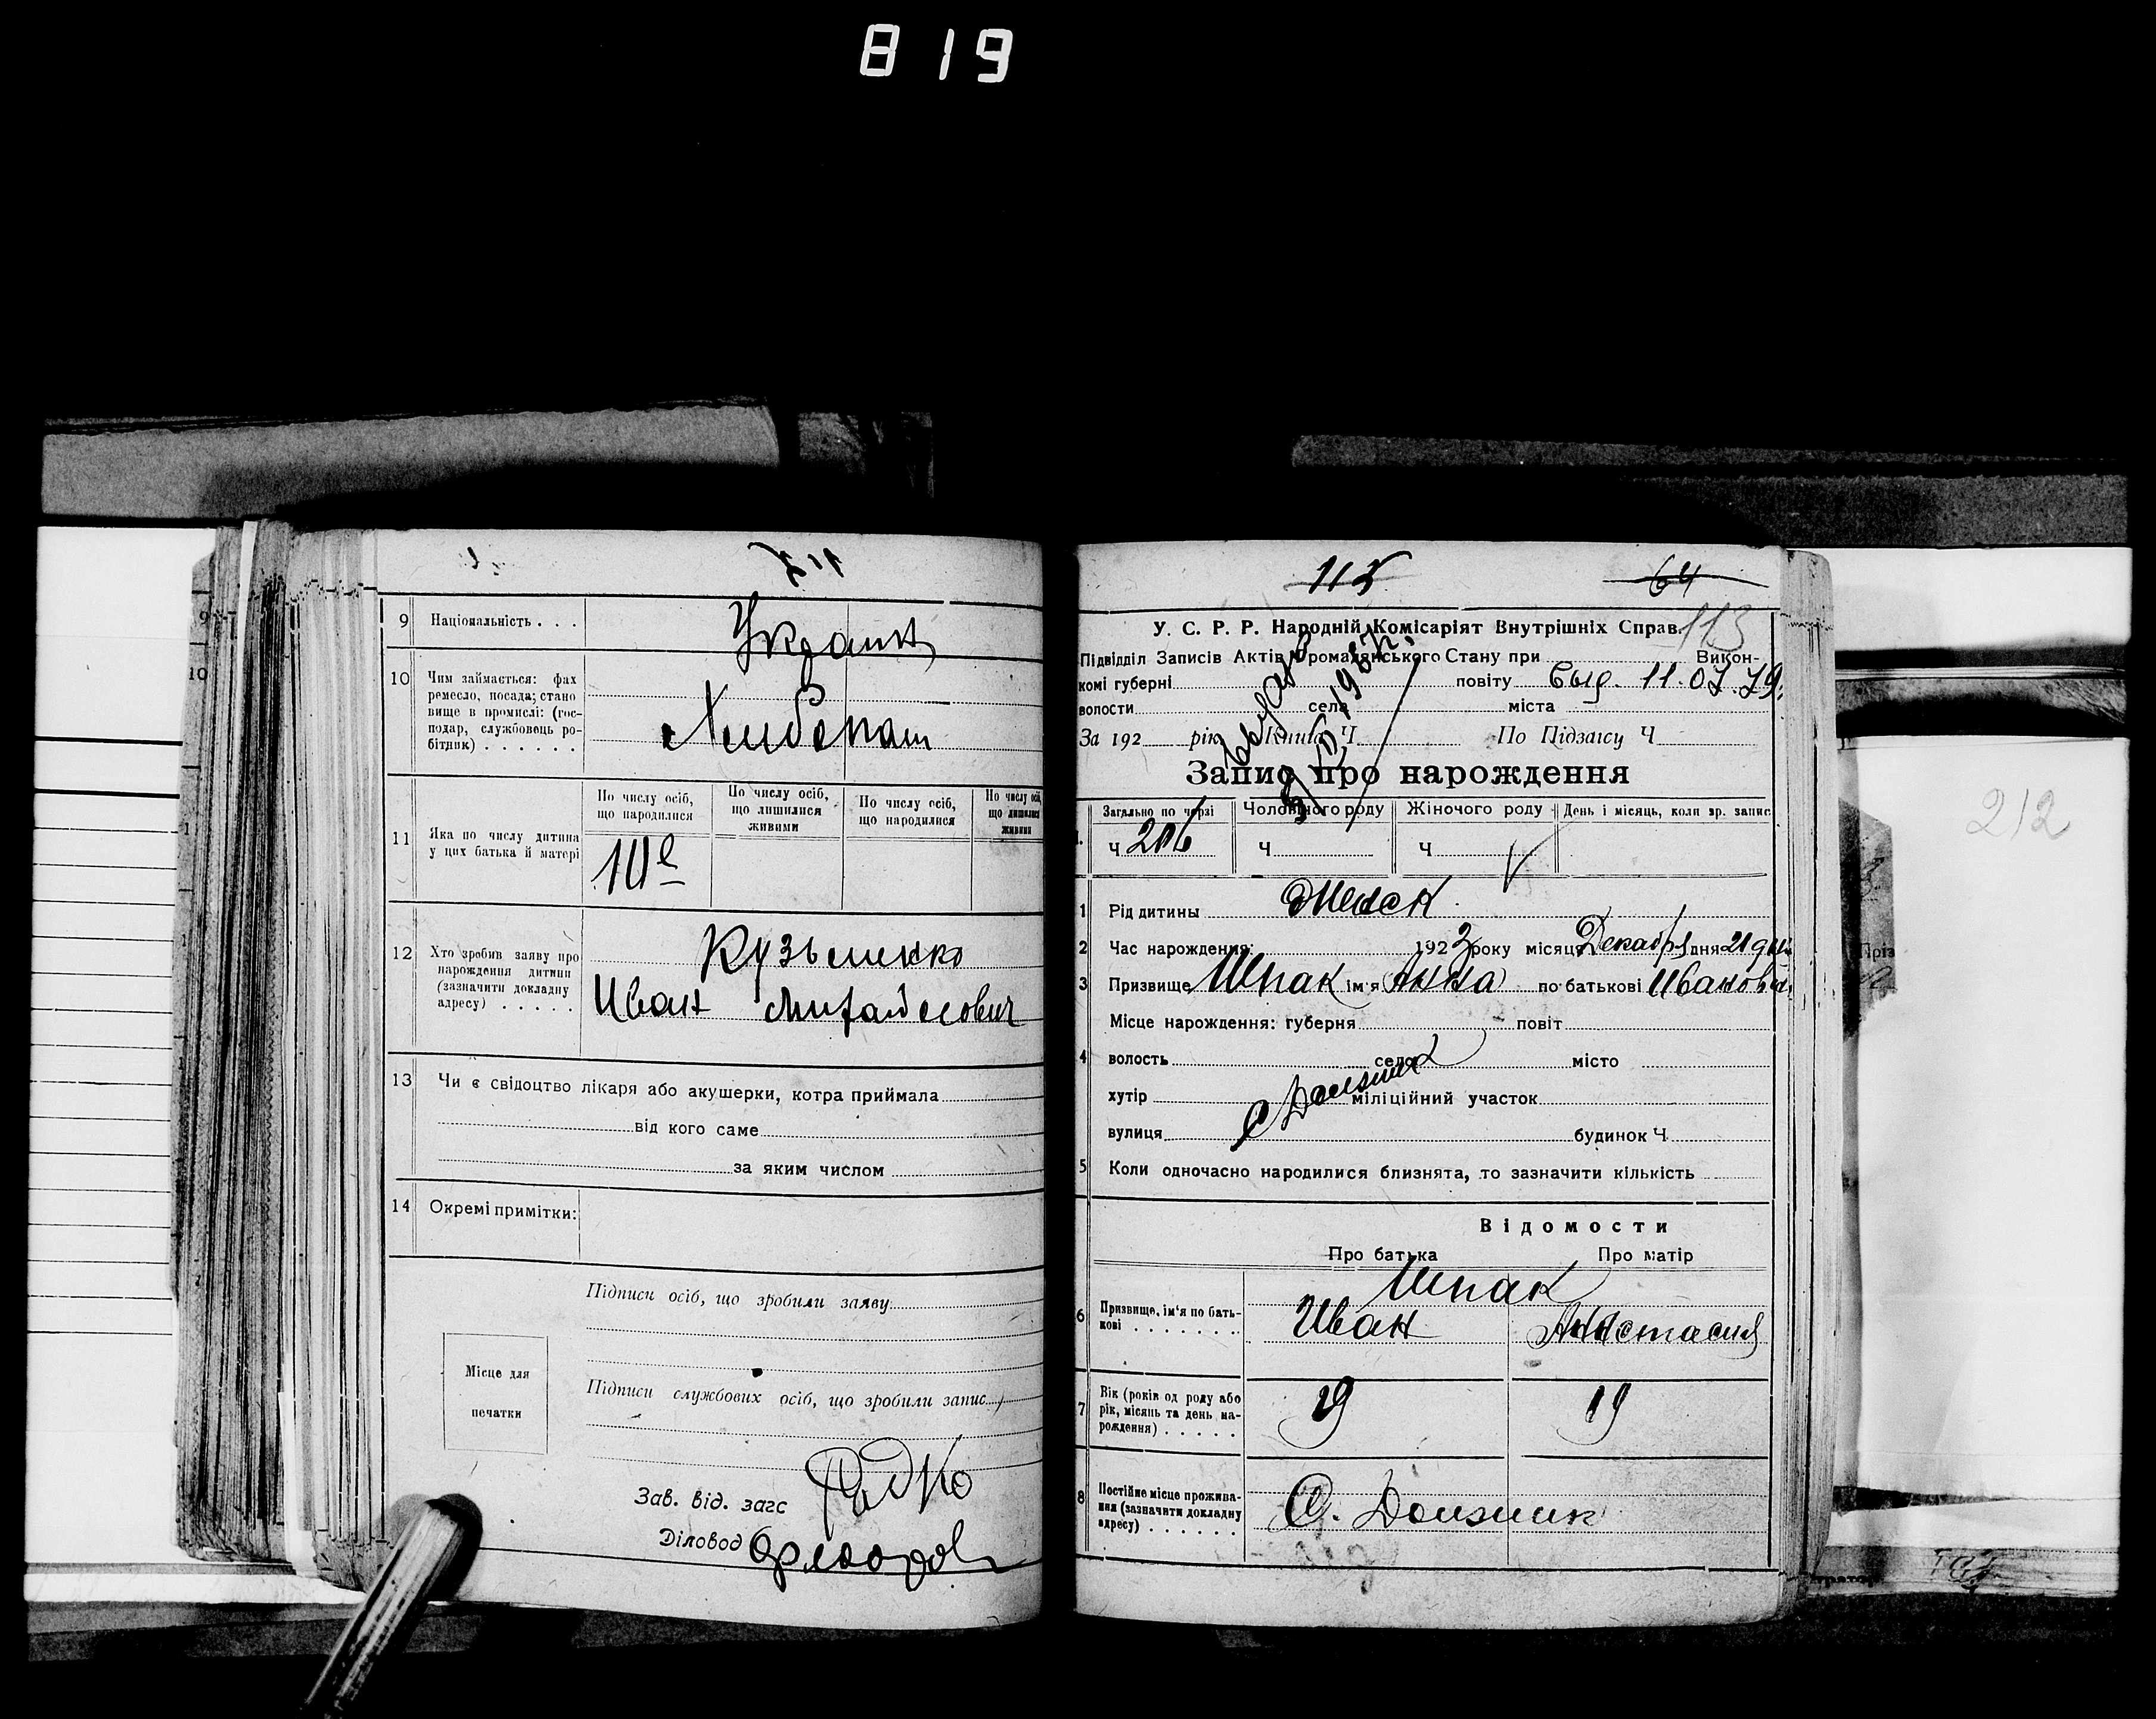 819
9 Національність . . .
Украин
10 Чим займається: фах
ремесло, посада; стано
вище в промислі: (гос-
подар, службовець ро-
бітник) . . . . . .
Хлибопаш
11 Яка по числу дитина
у цих батька й матері
По числу осіб,
що народилися
По числу осіб,
що лишилися
живими
По числу осіб,
що народилися
По числу осіб,
що лишилися
живими
10е
12 Хто зробив заяву про
народження дитини
(зазначити докладну
адресу) . . . . .
Кузьменко
Иван Михайлович
13 Чи є свідоцтво лікаря або акушерки, котра приймала
від кого саме
за яким числом
14 Окремі примітки:
Підписи осіб, що зробили заяву
Місце для
печатки
Підписи службових осіб, що зробили запис
Зав. від. загс
Діловод
115 64
113
У. С. Р. Р. Народній Комісаріят Внутрішніх Справ.
Підвідділ Записів Актів Громадянського Стану при Викон-
комі губерні повіту 11.07.79.
волости села міста
За 192 рік Книга Ч По Підзаісу Ч
Запис про нарождення
Загально по черзі Чоловічого роду Жіночого роду День і місяць, коли зр. запис
1. Ч 206 Ч Ч
1 Рід дитины Женск
2 Час нарождення: 1923 року місяця Декабря дня 21
3 Призвище Шпак ім'я Анна по батькові Ивановна
Місце нарождення: губерня повіт
4 волость село місто
хутір міліційний участок
вулиця будинок Ч
5 Коли одночасно народилися близнята, то зазначити кількість
Відомости
Про батька Про матір
6 Призвище, ім'я по бать-
кові . . . . . . . .
Шпак
Иван Анастасия
7 Вік (років од роду або
рік, місяць та день на-
рождення) . . . . .
29 19
8 Постійне місце прожива-
ння (зазначити докладну
адресу) . . . . . .
212